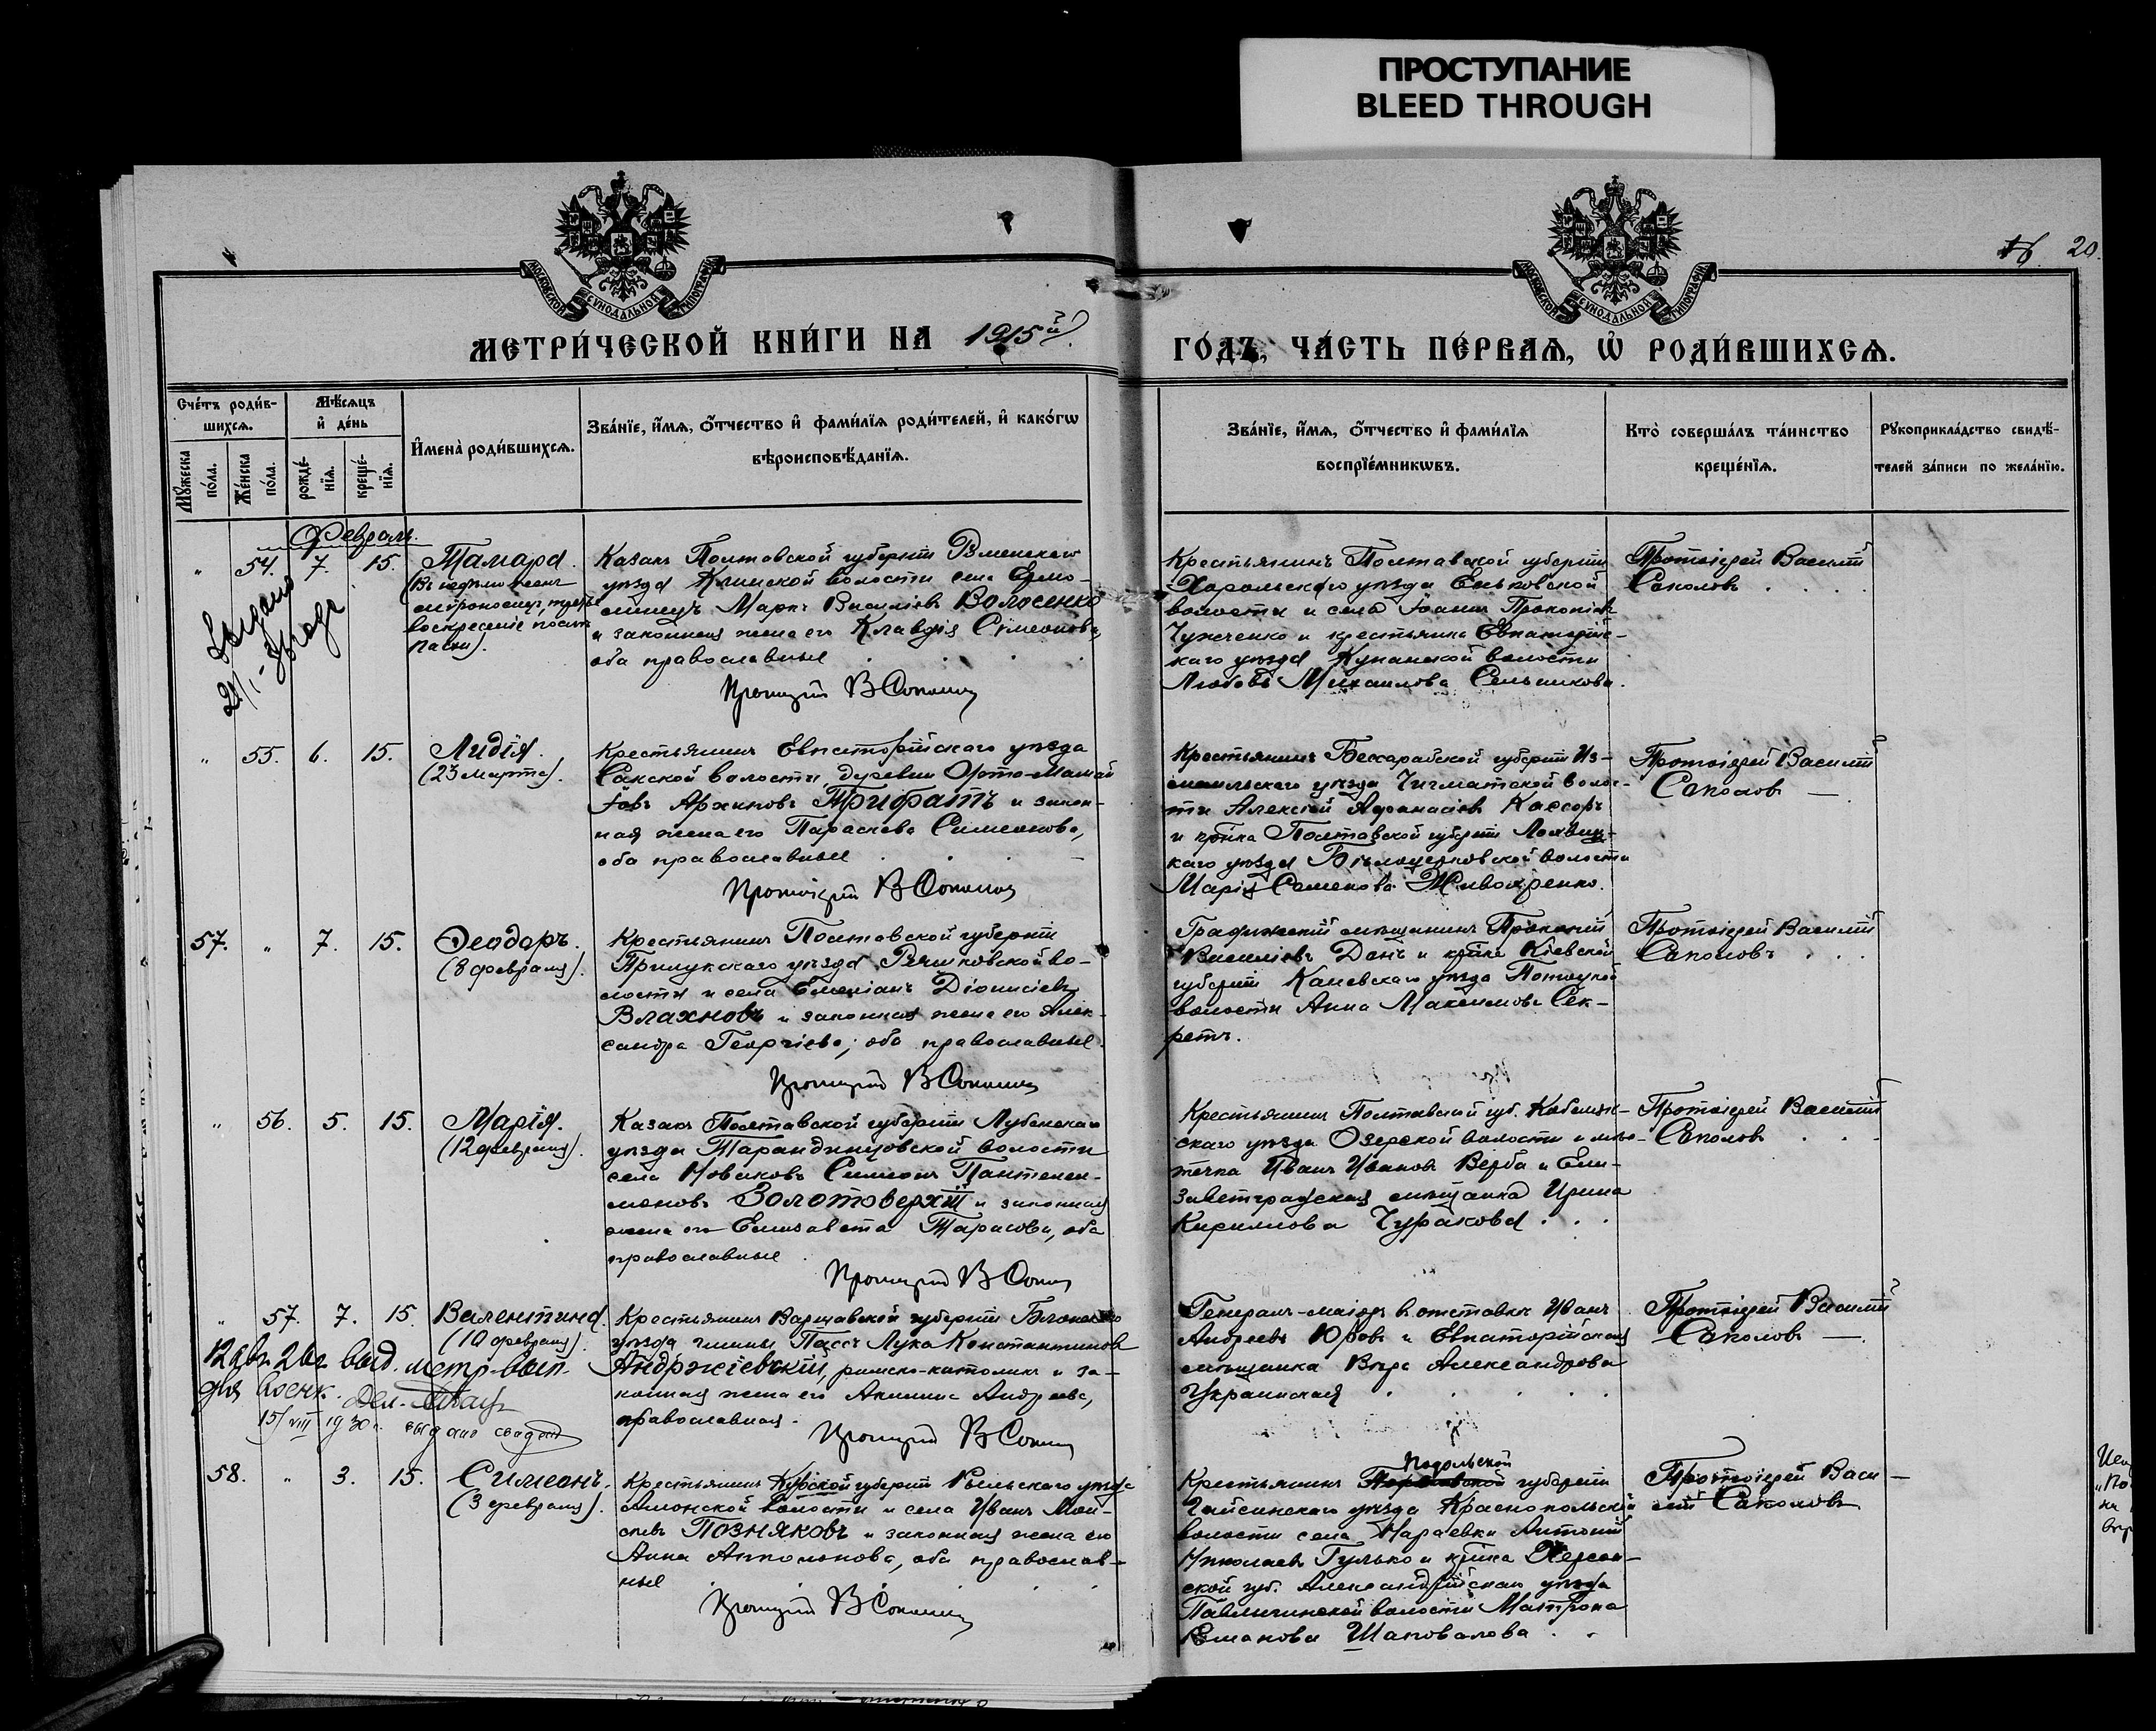 ПРОСТУПАНИЕ
BLEED THROUGH
16. 20.
МОСКОВСКОЙ СѴНОДАЛЬНОЙ ТИПОГРАФІИ
МОСКОВСКОЙ СѴНОДАЛЬНОЙ ТИПОГРАФІИ
МЕТРИ́ЧЕСКОЙ КНИ́ГИ НА 1915й
ГО́ДЪ, ЧА́СТЬ ПЕ́РВАѦ, Ѡ҆ РОДИ́ВШИХСѦ.
Сче́тъ роди́в-
шихсѧ.
Мꙋ́жеска по́ла.
Же́нска по́ла.
Мѣ́сѧцъ
и҆ де́нь
рожде́-
нїѧ.
креще́-
нїѧ.
И҆мена̀ роди́вшихсѧ.
Зва́нїе, и҆́мѧ, ѻ҆́тчество и҆ фами́лїѧ роди́телей, и҆ како́гѡ
вѣроисповѣ́данїѧ.
Зва́нїе, и҆́мѧ, ѻ҆́тчество и҆ фами́лїѧ
воспрїе́мникѡвъ.
Кто̀ соверша́лъ та́инство
креще́нїѧ.
Рꙋкоприкла́дство свидѣ́-
телей за́писи по жела́нїю.
Февраль.
" 54. 7. 15. Тамара.
воскресеніе послѣ
Пасхи).
Выдано
Казакъ Полтавской губерніи Роменскаго
уѣзда волости села
Маркъ Василіевъ Волосенко
и законная жена его Клавдія Симеонова,
оба православные
Протоіерей В Соколовъ
Крестьянинъ Полтавской губерніи
Хорольскаго уѣзда Еньковской
волости и села Іоаннъ Прокопіевъ
и крестьянка Евпаторійс-
каго уѣзда волости
Любовь Михаилова Сельникова.
Протоіерей Василій
Соколовъ
" 55. 6. 15. Лидія.
(23 марта).
Крестьянинъ Евпаторійскаго уѣзда
Сакской волости, деревни Орто-Мамай
Іовъ Архиповъ Прифатъ и закон-
ная жена его Параскева Симеонова,
оба православные
Протоіерей В Соколовъ
Крестьянинъ Бессарабской губерніи Из-
маильскаго уѣзда волос-
ти Алексѣй Аѳанасіевъ
и кр̃нка Полтавской губерніи Лохвиц-
каго уѣзда Бѣлоцерковской волости
Марія Семенова
Протоіерей Василій
Соколовъ —
57. " 7. 15. Ѳеодоръ.
(8 февраля).
Крестьянинъ Полтавской губерніи
Прилукскаго уѣзда во-
лости и села Емеліанъ Діонисіевъ
Влахновъ и законная жена его Алек-
сандра Георгіева; оба православные.
Протоіерей В Соколовъ
мѣщанинъ Прокопій
Василіевъ и кр̃нка Кіевской
губерніи Каневскаго уѣзда Потоцкой
волости Анна Максимова Сек-
ретъ.
Протоіерей Василій
Соколовъ
" 56. 5. 15. Марія.
(12 февраля).
Казакъ Полтавской губерніи Лубенскаго
уѣзда Тарандинцовской волости
села Новаковъ Симеонъ Пантелеи-
моновъ Золотоверхій и законная
жена его Елизавета Тарасова, оба
православные
Протоіерей В Соколовъ
Крестьянинъ Полтавской губ. Кобеляк-
скаго уѣзда Озерской волости и мѣс-
течка Иванъ Ивановъ Верба и Ели-
заветградская мѣщанка Ирина
Кириллова Чуракова
Протоіерей Василій
Соколовъ
" 57. 7. 15. Валентина.
(10 февраля).
12 авг. 20г. выд. метр. вып.
15/VIII 1930г. выдано
Крестьянинъ Варшавской губерніи
уѣзда гмины Пассъ Лука Константиновъ
Андржіевскій, римско-католикъ и за-
конная жена его Андреева,
православная.
Протоіерей В Соколовъ
Генералъ-маіоръ въ отставкѣ Иванъ
Андреевъ Юровъ и Евпаторійская
мѣщанка Вѣра Александрова
Украинская
Протоіерей Василій
Соколовъ —
58. " 3. 15. Симеонъ.
(3 февраля).
Крестьянинъ Курской губерніи Рыльскаго уѣзда
волости и села Иванъ Мои-
сеевъ Позняковъ и законная жена его
Анна Антонова, оба православ-
ные
Протоіерей В Соколовъ
Подольской
Крестьянинъ губерніи
Гайсинскаго уѣзда Краснопольской
волости села Мараевки Антоній
Николаевъ Гулько и кр̃нка Херсон-
ской губ. Александрійскаго уѣзда
волости Матрона
Романова Шаповалова
Протоіерей Васи-
лій Соколовъ